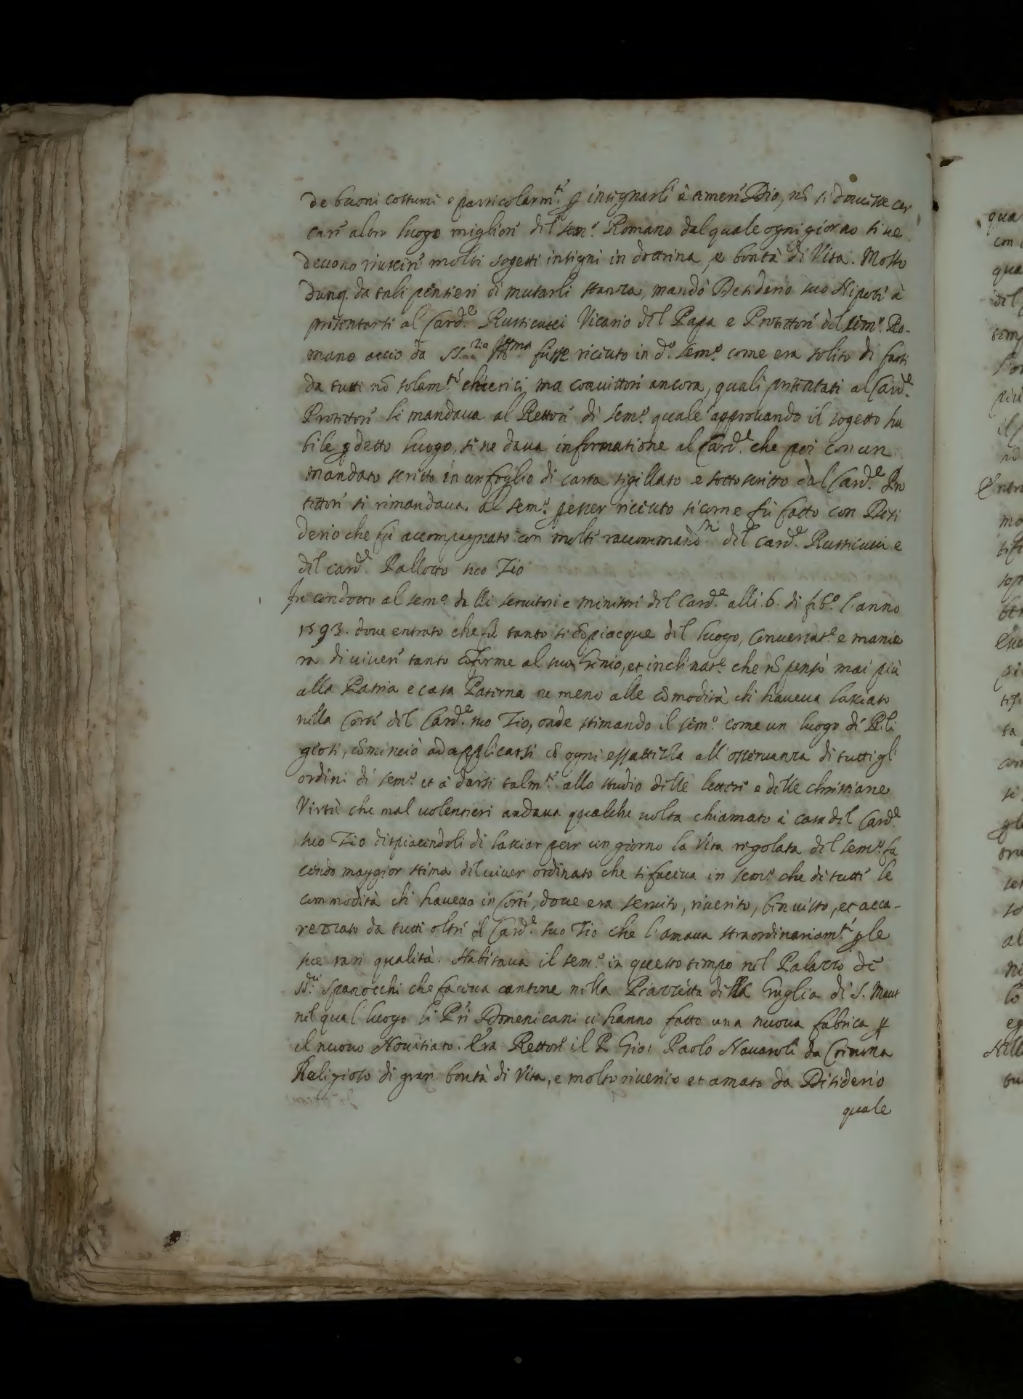 de buoni costumi e particolarm.te p insegnarli à temer Dio, nõ si dovesse cer
care altro luogo miglior del sem.o Romano dal quale ogni giorno si ve
devono riuscire molti sogetti insigni in dottrina, e bontà di Vita. Mosso
dunq. da tali pensieri di mutarli stanza, mandò Desiderio suo Nipote à
presentarsi al Card.e Rusticucci Vicario del Papa e Protettore del sem.o Ro-
mano acciò da S.S.a Ill.ma fusse riceuto in d.o sem.o come era solito di farsi
da tutti nõ solam.te chierici, ma convittori ancora, quali presentati al Card.e
Protettore li mandava al Rettore di sem.o quale approvando il sogetto ha
bile p detto luogo, si ne dava informatione al Card.e che poi con un
mandato scritto in un foglio di carta sigillato e sottoscritto dàl Card.e Pro
tettore si rimandava al sem.o p esser riceuto sicome fù fatto con Desi
derio che fù accompagnato con molte raccommand.ni del Card.e Rusticucci e
del card.e Pallotto suo Zio
Fu condotto al sem.o da lli servitori e ministri del Card.e alli 6. di feb.o l'anno
1593. dove entrato che fù tanto si cõpiacque del luogo, conversat.e e manie
ra di vivere tanto cõforme al suo Genio, et inclinat.e che nõ pensò mai più
alla Patria e casa Paterna ne meno alle cõmodità chi haveva lasciato
nella Corte del Card.e suo Zio, onde stimando il sem.o come un luogo di Reli
giosi, cõminciò ad applicarsi cõ ogni essattezza all'osservanza di tutti gl'
ordini di sem.o et à darsi talm.te allo studio delle lettere e delle christiane
Virtù che mal volentieri andava qualche volta chiamato à casa del Card.e
suo Zio dispiacendoli di lasciar per un giorno la Vita regolata del sem.o fa
cendo maggior stima del viver ordinato che si faceva in sem.o che di tutte le
commodità chi haveva in Corte, dove era servito, riverito, ben visto, et acca-
rezzato da tutti oltre il Card.e suo Zio che l'amava straordinariam.te p le
sue rare qualità. Habitava il sem.o in questo tempo nel Palazzo de
SS.ri Spanocchi che faceva cantone nella Piazzetta della Guglia di S. Maut
nel qual luogo li P.ri Domenicani ci hanno fatto una nuova fabrica p
il nuovo Novitiato. Era Rettore il P. Gio: Paolo Navaroli da Cremona
Religioso di gran bontà di Vita, e molto riverito et amato da Desiderio
quale